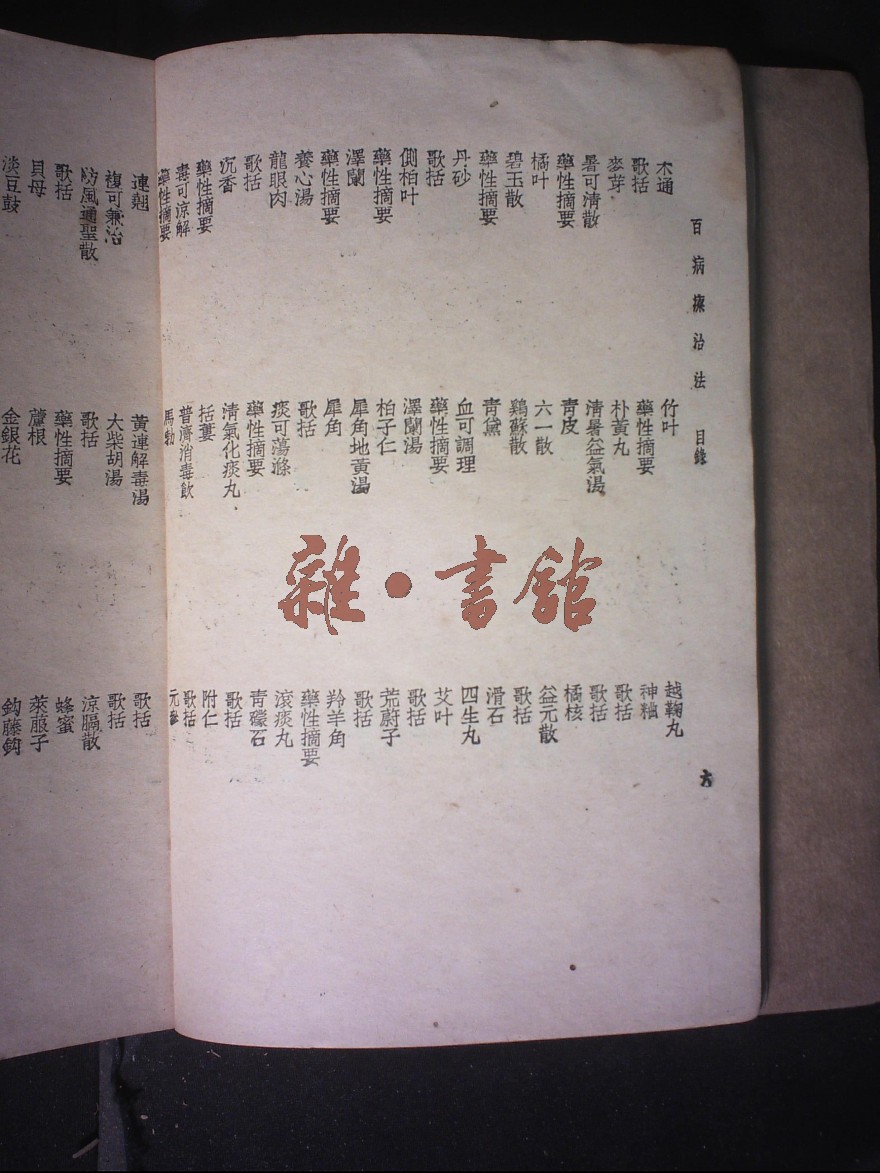 百病療治法 目錄 六
木通 竹叶 越鞠丸
歌括 藥性摘要 神糀
麥芽 朴黃丸 歌括
暑可清散 清暑益氣湯 歌括
藥性摘要 青皮 橘核
橘叶 六一散 益元散
碧玉散 鷄蘇散 歌括
藥性摘要 青黛 滑石
丹砂 血可調理 四生丸
歌括 藥性摘要 艾叶
側柏叶 澤蘭湯 歌括
藥性摘要 柏子仁 荒蔚子
澤蘭 犀角地黃湯 歌括
藥性摘要 犀角 羚羊角
養心湯 歌括 藥性摘要
龍眼肉 痰可蕩滌 滾痰丸
歌括 藥性摘要 青礞石
沉香 清氣化痰丸 歌括
藥性摘要 括蔞 附仁
毒可涼解 普濟消毒飲 歌括
藥性摘要 馬勃 元參
連翹 黃連解毒湯 歌括
複可兼治 大柴胡湯 歌括
防風通聖散 歌括 涼膈散
歌括 藥性摘要 蜂蜜
貝母 蘆根 萊菔子
淡豆鼓 金銀花 鈎藤鈎
雜·書館